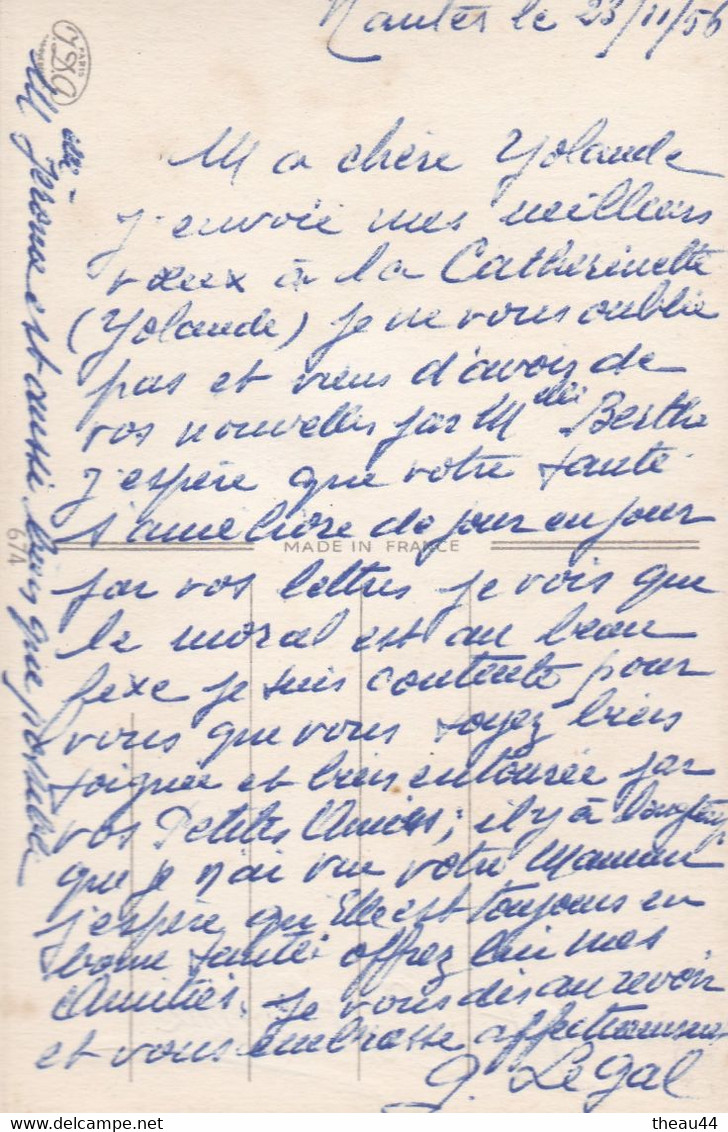 Nantes le 23/11/56
Ma chère Yolande
j'envoie mes meilleurs
vœux à la Catherinette
(Yolande) je ne vous oublie
pas et viens d'avoir de
vos nouvelles par Mlle Berthe
j'espère que votre santé
s'ameliore de jour en jour
MADE IN FRANCE
par vos lettres je vois que
le moral est au beau
fixe je suis contente pour
vous que vous soyez bien
soignée et bien entourée par
vos Petites Amies; il y à longtemps
que je n'ai vu votre Maman
j'espère qu'Elle est toujours en
bonne santé offrez lui mes
Amitiés. je vous dis au revoir
et vous embrasse affectueusement
G. Le Gal
est aussi bien que possible
674
PARIS
theau44